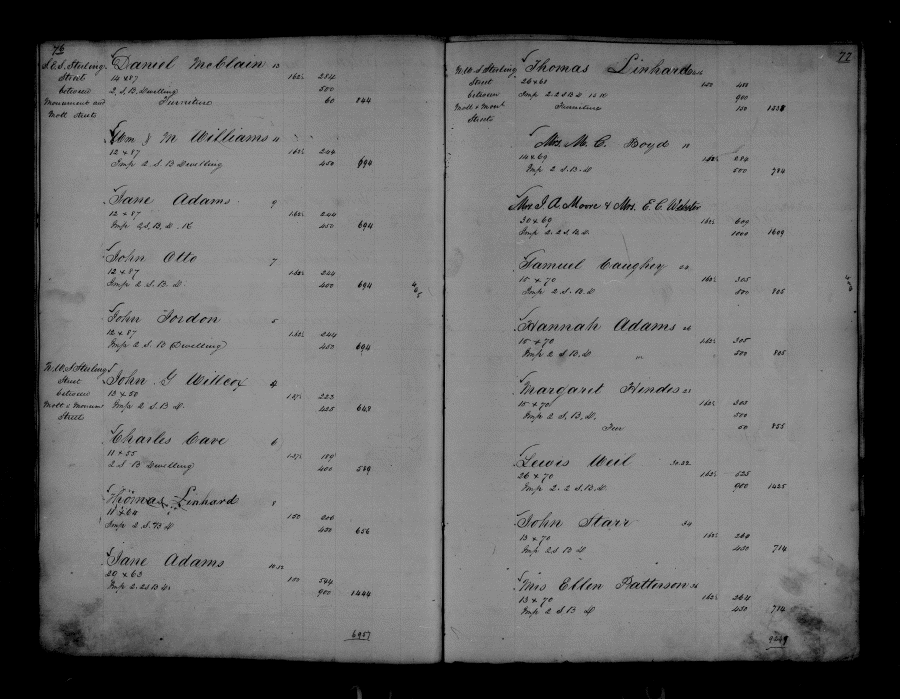 76
S.E.S. Sterling Daniel McClain 13
Street 14 x 87 162½ 284
between 2, S.B. Dwelling 500
Monument and Furniture 60 844
Mott Streets
Wm & M Williams 11
12 x 87 162½ 244
Imp 2 S. B Dwelling 450 694
Jane Adams 9
12 x 87 162½ 244
Imp 2 S, B, D. 450 694
John Otto 7
12 x 87 162½ 244
Imp 2 S. B. D. 694
John Jordon 5
12 x 87 162½ 244
Imp 2 S. B Dwelling 450 694
N.W.S Sterling
Street John G Willcox 4
between 13 x 50 223
Mott & Monum Imp 2 S. B. D. 425 648
Street
Charles Cave 6
11 x 55
2 S B Dwelling 400 589
Thomas Linhard 8
11 x 64 150 206
Imp 2 S. B D 450 656
Jane Adams 10.12
20 x 63 150 544
Imp 2. 2 S B D. 900 1444
6957
77
N.W.S Sterling Thomas Linhard
Street 26 x 68 150
between Imp 2. 2 S B D 900
Mott & Mont Furniture 150
Streets
Mrs. M. C. Boyd 18
14 x 69 162½ 284
Imp 2 S. B. D 500 784
Mrs J. A. Moore & Mrs. E. C. Webster
30 x 69 162½ 609
Imp 2. 2 S B D. 1000 1609
Samuel Caughey
15 x 70 162½ 305
Imp 2 S. B. D 500 805
Hannah Adams 26
15 x 70 162½ 305
Imp 2 S. B. D " 500 805
Margaret Hendes 28
15 x 70 162½ 305
Imp 2 S, B, D. 500
Fur 50 855
Lewis Weil 30.32
26 x 70 162½ 525
Imp 2. 2 S. B. D. 900 1425
John Starr 34
13 x 70 162½ 264
Imp 2 S B D 450 714
Mrs Ellen Patterson 36
13 x 70 162½ 264
Imp 2 S B D 450 714
9249